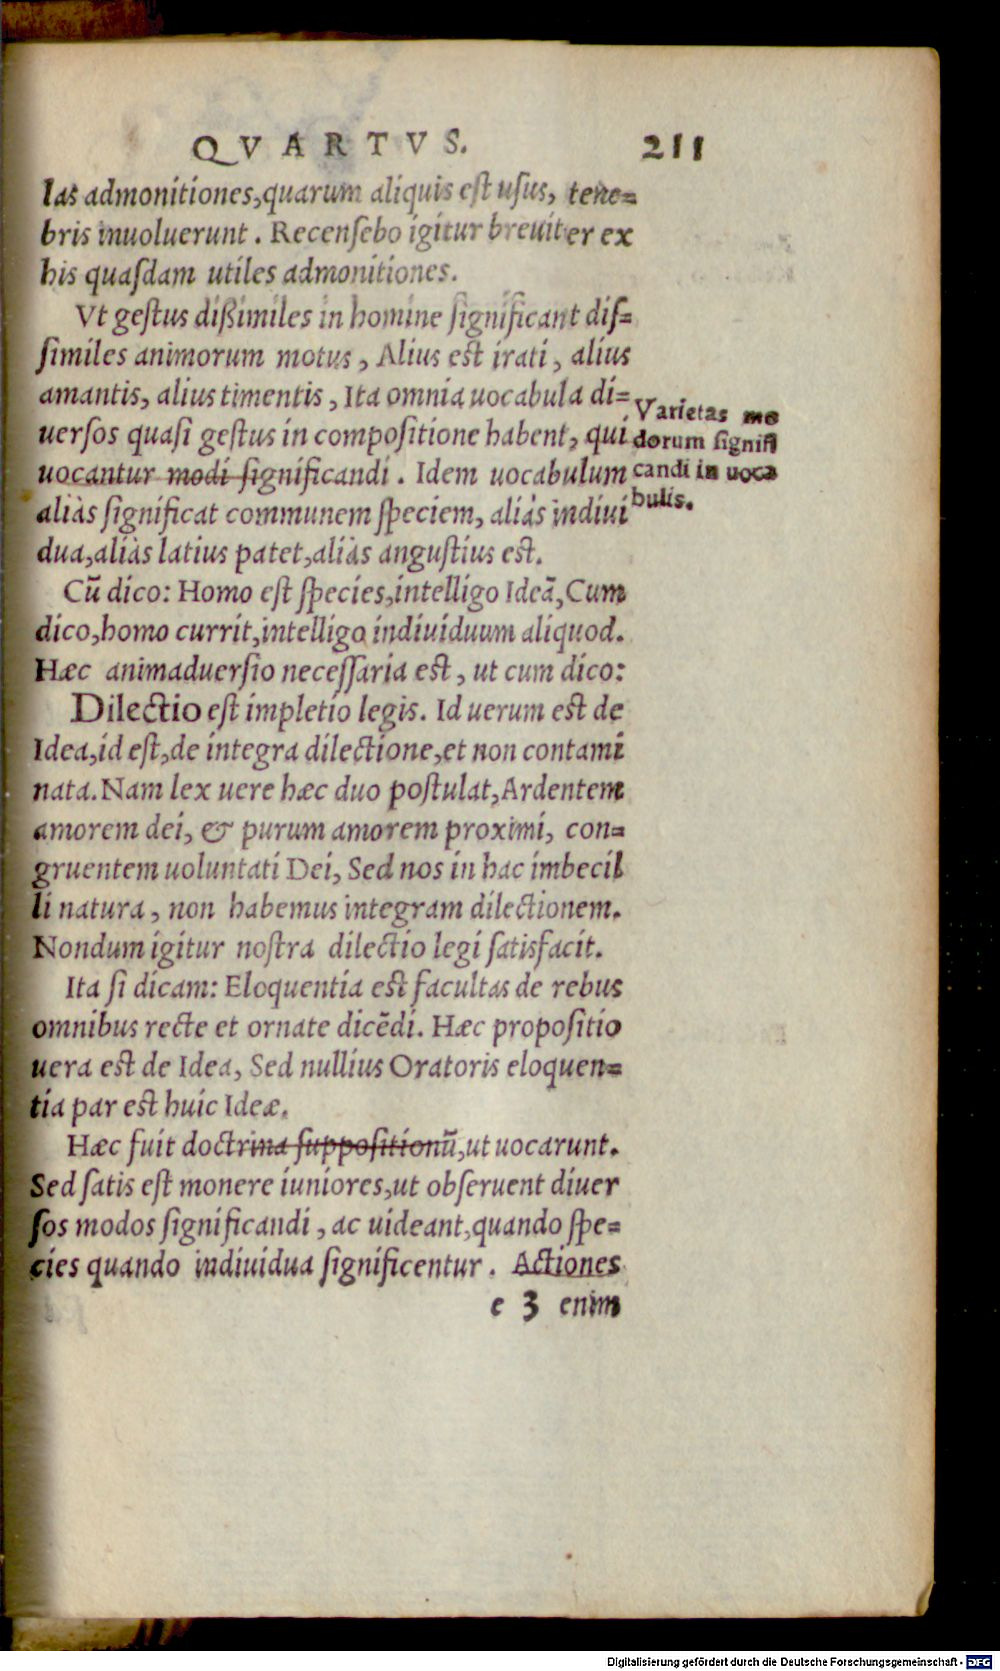 QVARTVS. 211
las admonitiones,quarum aliquis est usus, tene=
bris inuoluerunt. Recensebo igitur breuiter ex
his quasdam utiles admonitiones.
Vt gestus dißimiles in homine significant dis=
similes animorum motus, Alius est irati, alius
amantis, alius timentis, Ita omnia uocabula di=
uersos quasi gestus in compositione habent, qui
uocantur modi significandi. Idem uocabulum
aliàs significat communem speciem, aliàs indiui
dua,aliàs latius patet,aliàs angustius est.
Varietas mo
dorum signifi
candi in uoca
bulis.
Cū dico: Homo est species,intelligo Ideā,Cum
dico,homo currit,intelligo indiuiduum aliquod.
Hæc animaduersio necessaria est, ut cum dico:
Dilectio est impletio legis. Id uerum est de
Idea,id est,de integra dilectione,et non contami
nata.Nam lex uere hæc duo postulat,Ardentem
amorem dei, & purum amorem proximi, con=
gruentem uoluntati Dei, Sed nos in hac imbecil
li natura, non habemus integram dilectionem.
Nondum igitur nostra dilectio legi satisfacit.
Ita si dicam: Eloquentia est facultas de rebus
omnibus recte et ornate dicēdi. Hæc propositio
uera est de Idea, Sed nullius Oratoris eloquen=
tia par est huic Ideæ.
Hæc fuit doctrina suppositionū,ut uocarunt.
Sed satis est monere iuniores,ut obseruent diuer
sos modos significandi, ac uideant,quando spe=
cies quando indiuidua significentur. Actiones
e 3 enim
Digitalisierung gefördert durch die Deutsche Forschungsgemeinschaft - DFG